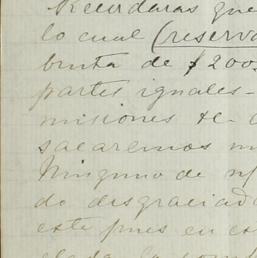 Recordaras que
lo cual (reserva
bruta de $200
partes iguales-
misiones &c.
sacaremos
Ninguno de
do desgraciad
este pues en